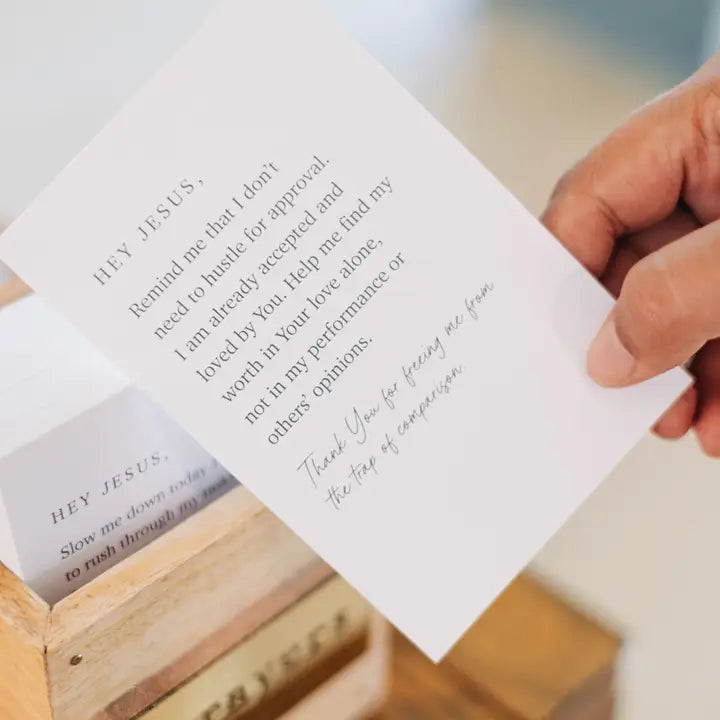 HEY JESUS,
Remind me that I don't
need to hustle for approval.
I am already accepted and
loved by You. Help me find my
worth in Your love alone,
not in my performance or
others' opinions.
Thank You for freeing me from
the trap of comparison.
HEY JESUS,
Slow me down today
to rush through my
rayers